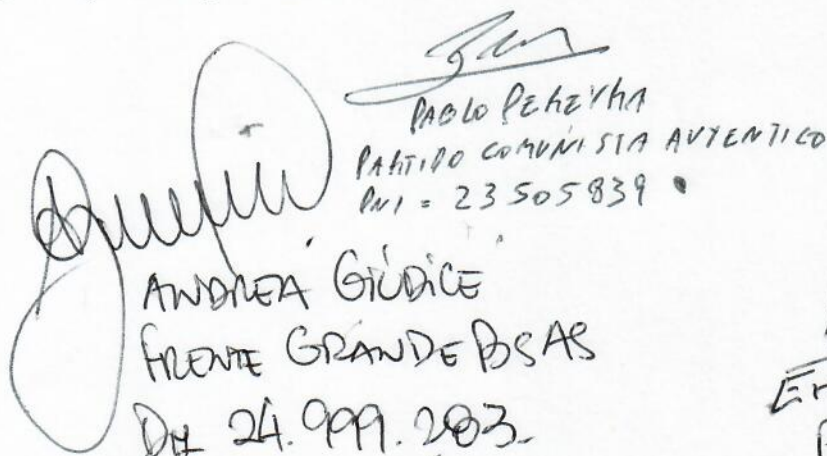 PABLO PEREYRA
PARTIDO COMUNISTA AUTENTICO
DNI = 23505839
ANDREA GIUDICE
FRENTE GRANDE BS AS
24.999.283.